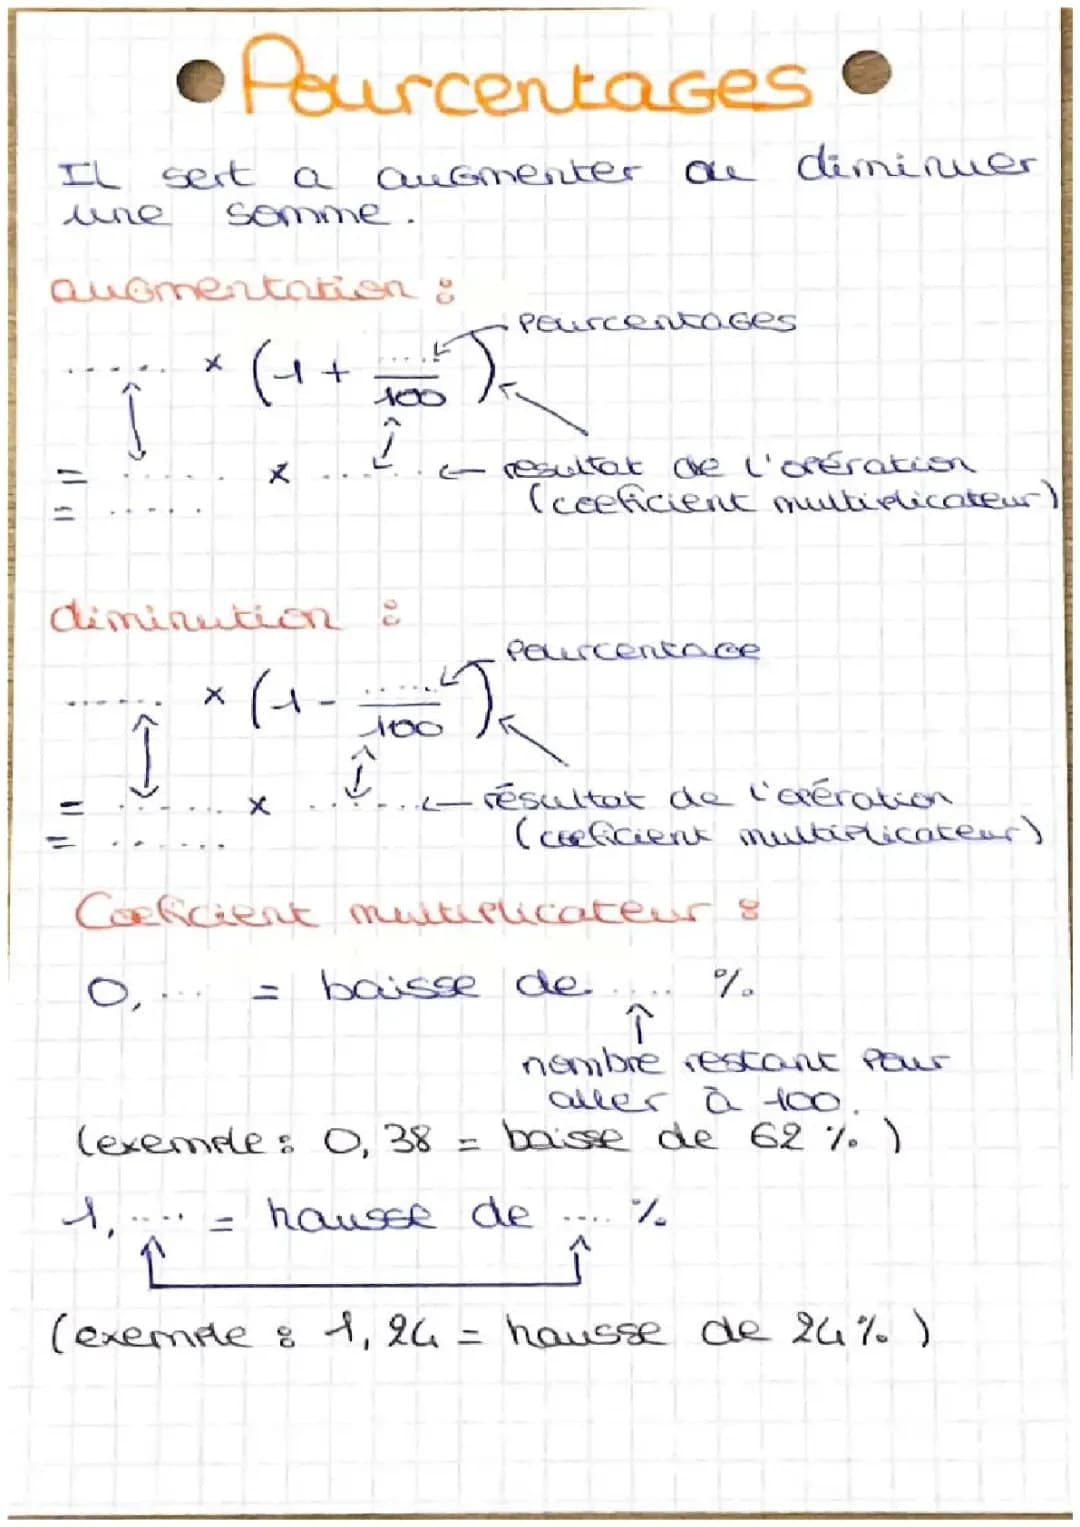 Pourcentages
Il sert a augmenter ou diminuer
une somme.
augmentation :
Pourcentages
...... × (1 + ..... / 100)
= ...... × ...... ← resultat de l'opération
(coeficient multiplicateur)
= ......
diminution :
Pourcentage
....... × (1 - ...... / 100)
= ...... × ...... ← résultat de l'opération
(coeficient multiplicateur)
= ......
Coeficient multiplicateur :
0, ... = baisse de .... %.
nombre restant pour
aller à 100.
(exemple : 0,38 = baisse de 62 %. )
1, ..... = hausse de .... %.
(exemple : 1,24 = hausse de 24 %. )